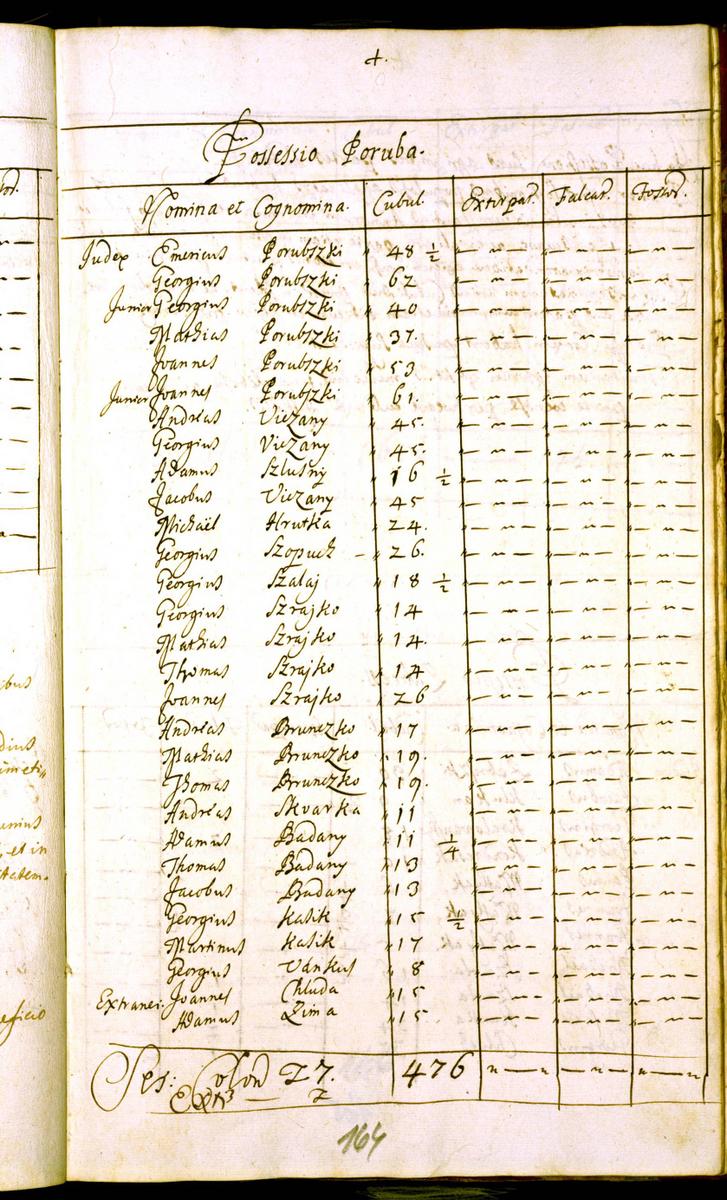 4.
Possessio Poruba.
Nomina et Cognomina. Cubul. Extirpat. Falcat. Fossor.
Judex Emericus Porubszki " 48 ½ " — " —
Georgius Porubszki " 62 " — " —
Junior Georgius Porubszki " 40 " — " —
Mathias Porubszki " 37. " — " —
Joannes Porubszki " 53 " — " —
Junior Joannes Porubszki " 61. " — " —
Andreas Viezany " 45. " — " —
Georgius Viezany " 45. " — " —
Adamus Szlusny " 16 ½ " — " —
Jacobus Viezany " 45 " — " —
Michaël Hrutka " 24. " — " —
Georgius Szopuch — " 26. " — " —
Georgius Szalaj " 18 ½ " — " —
Georgius Szrajko " 14 " — " —
Mathias Szrajko " 14. " — " —
Thomas Szrajko " 14 " — " —
Joannes Szrajko " 26 " — " —
Andreas Bruneczko " 17 " — " —
Mathias Bruneczko " 19. " — " —
Thomas Bruneczko " 19. " — " —
Andreas Skvarka " 11 " — " —
Adamus Badany " 11 ¼ " — " —
Thomas Badany " 13 " — " —
Jacobus Badany " 13 " — " —
Georgius Kasik " 15 ½ " — " —
Martinus Kasik " 17 " — " —
Georgius Vankus " 8 " — " —
Extranei. Joannes Chluda " 15 " — " —
Adamus Zima " 15. " — " —
Ses: Colon 27. 476 " — " —
Extr — 2
164